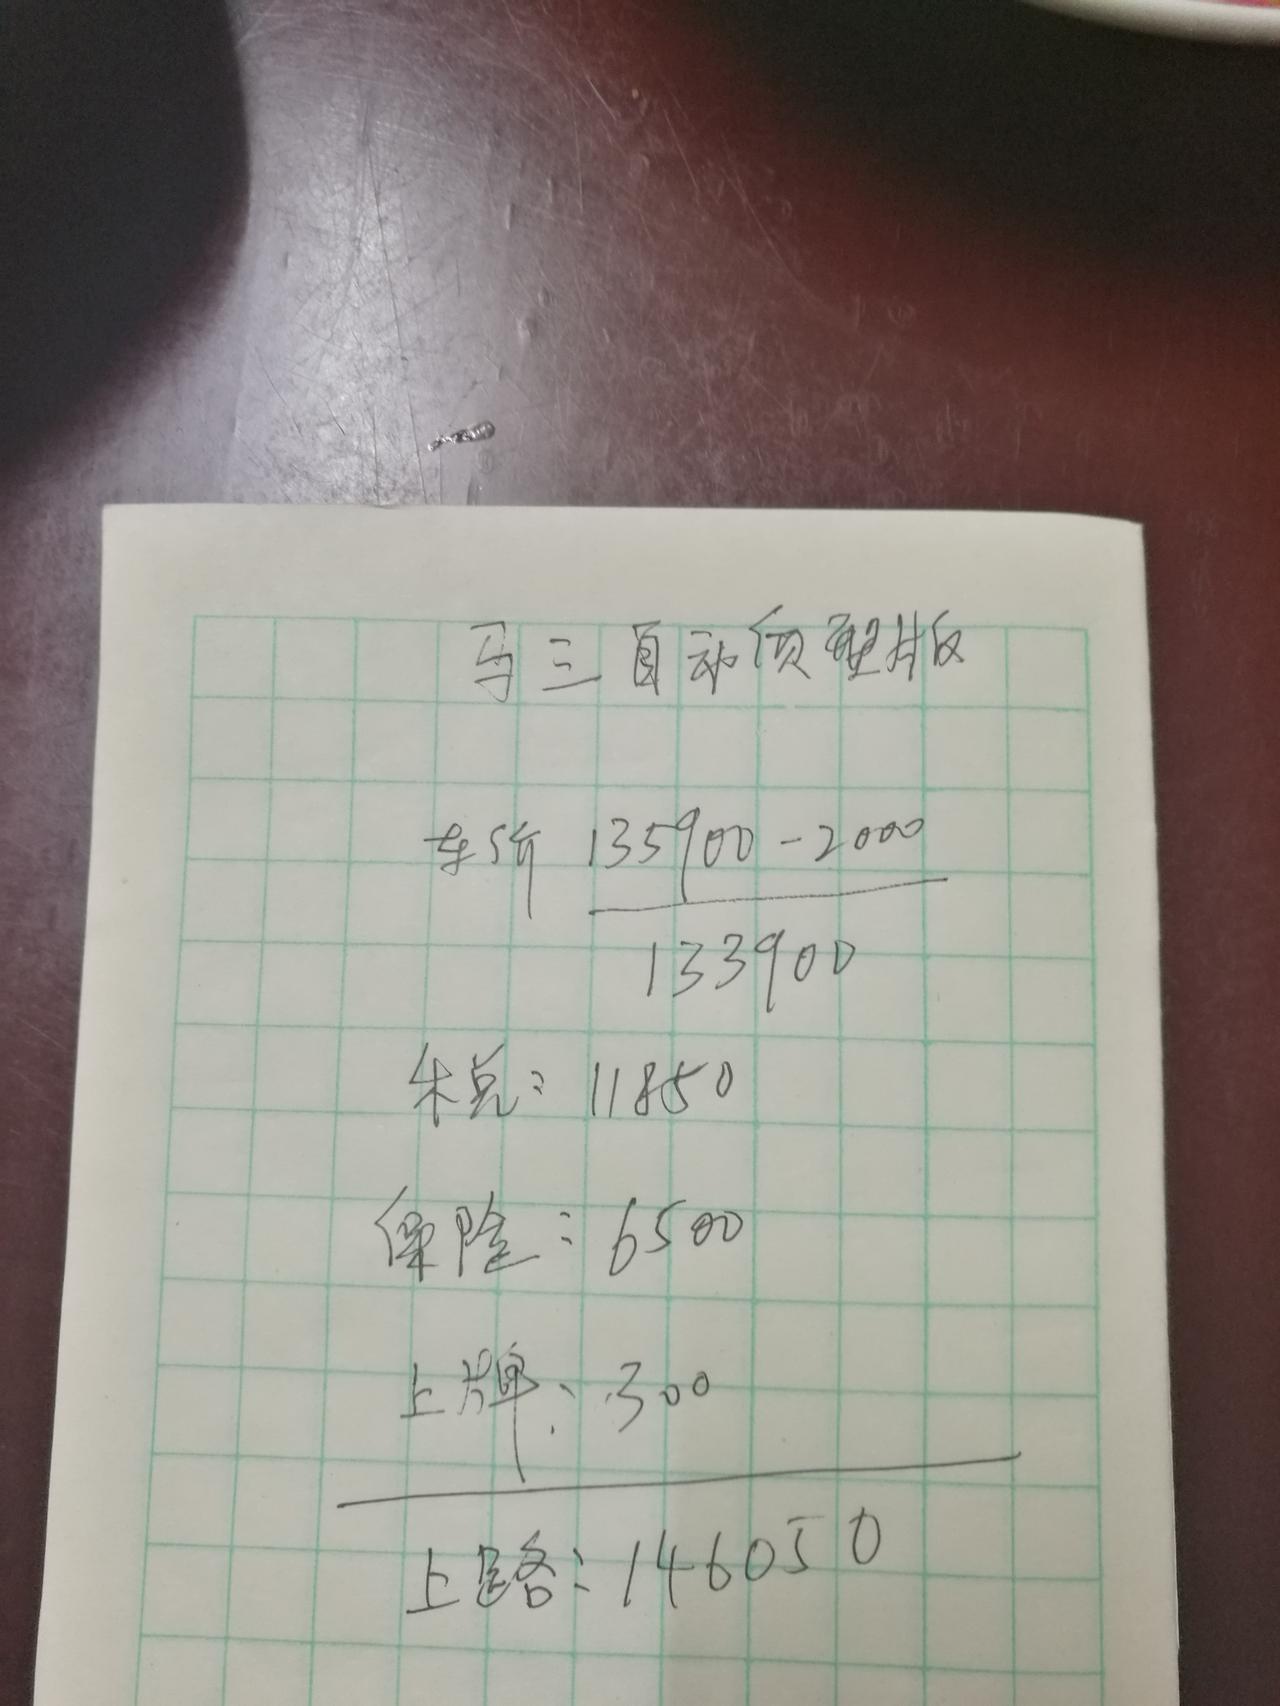 马三自动质型版
车价 135900-2000
133900
朱兑: 11850
保险: 6500
上牌: 300
上路: 146050